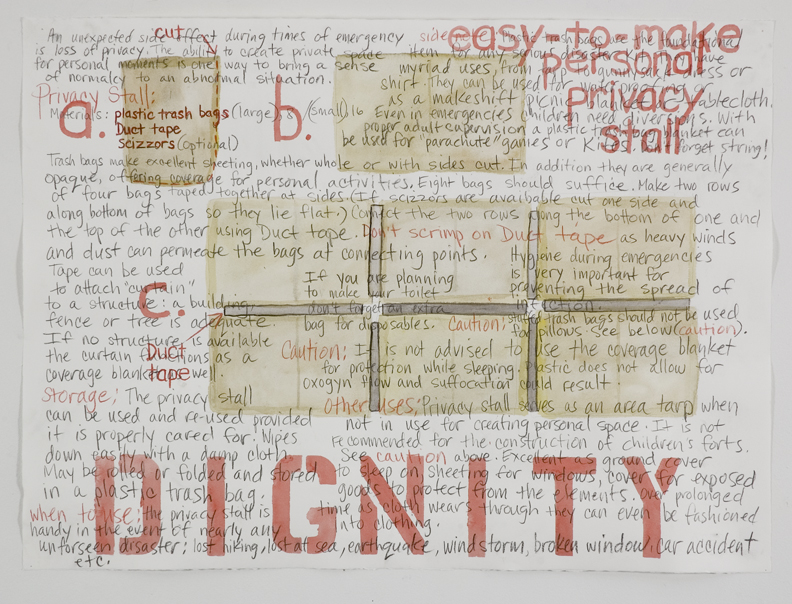 An unexpected side effect during times of emergency
is loss of privacy. The ability to create private space
for personal moments is one way to bring a sense
of normalcy to an abnormal situation.
cut
easy-to-make
personal
privacy
stall
Privacy Stall:
Materials: plastic trash bags (large) 8 /(small) 16
Duct tape
scizzors (optional)
a.
b.
side note: Plastic trash bags are the foundational
item for any serious disaster
myriad uses, from tarp to
shirt. They can be used for
as a makeshift picnic tablecloth.
Even in emergencies children need diversions. With
proper adult supervision a plastic trash bag blanket can
be used for "parachute" games or Kites. forget string!
Trash bags make excellent sheeting, whether whole or with sides cut. In addition they are generally
opaque, offering coverage for personal activities. Eight bags should suffice. Make two rows
of four bags taped together at sides. (If scizzors are available cut one side and
along bottom of bags so they lie flat.) Connect the two rows along the bottom of one and
the top of the other using Duct tape. Don't scrimp on Duct tape as heavy winds
and dust can permeate the bags at connecting points.
Tape can be used
to attach "curtain"
to a structure: a building,
fence or tree is adequate.
If no structure is available
the curtain functions as a
coverage blanket as well
c.
Duct
tape
If you are planning
to make your toilet
don't forget an extra
bag for disposables.
Hygiene during emergencies
is very important for
preventing the spread of
infection.
caution: trash bags should not be used
for pillows. See below (caution).
Caution: It is not advised to use the coverage blanket
for protection while sleeping. Plastic does not allow for
oxogyn flow and suffocation could result.
Storage: The privacy stall
can be used and re-used provided
it is properly cared for. Wipes
down easily with a damp cloth
May be rolled or folded and stored
in a plastic trash bag.
other uses: Privacy stall serves as an area tarp when
not in use for creating personal space. It is not
recommended for the construction of children's forts.
See caution above. Excellent as ground cover
to sleep on, sheeting for windows, cover for exposed
goods to protect from the elements. Over prolonged
time as cloth wears through they can even be fashioned
into clothing.
when to use: the privacy stall is
handy in the event of nearly any
unforseen disaster; lost hiking, lost at sea, earthquake, windstorm, broken window, car accident
etc.
DIGNITY